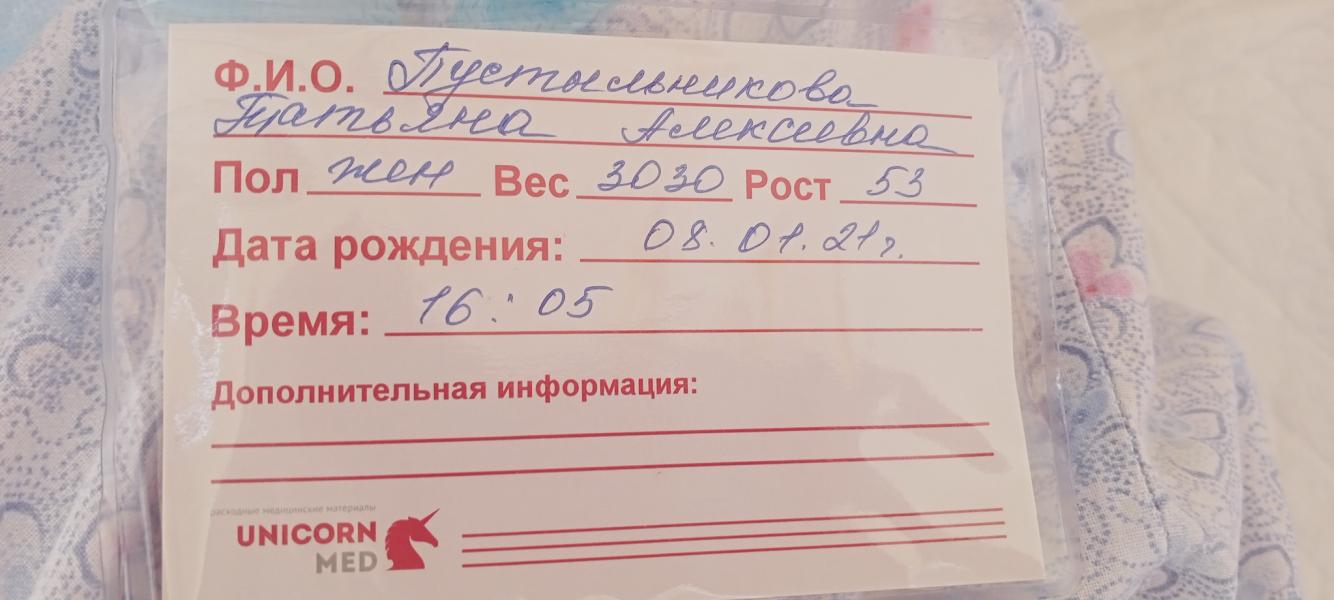 Ф.И.О. Пустыльникова
Татьяна Алексеевна
Пол жен Вес 3030 Рост 53
Дата рождения: 08.01.21г.
Время: 16:05
Дополнительная информация:
расходные медицинские материалы
UNICORN
MED